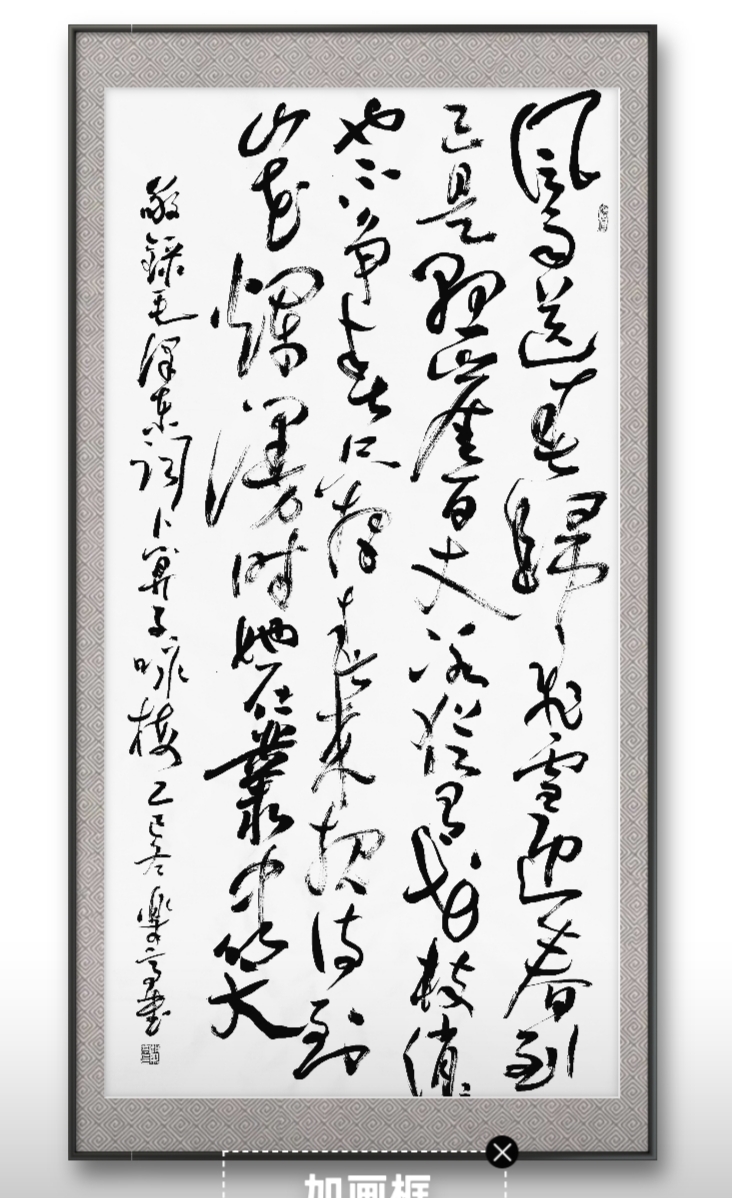 風雨送春歸飛雪迎春到
已是懸崖百丈冰犹有花枝俏
也不争春只把春来报待到
山花爛漫时她在叢中笑
敬録毛澤东词卜算子咏梅 乙巳冬 樂書
加画框